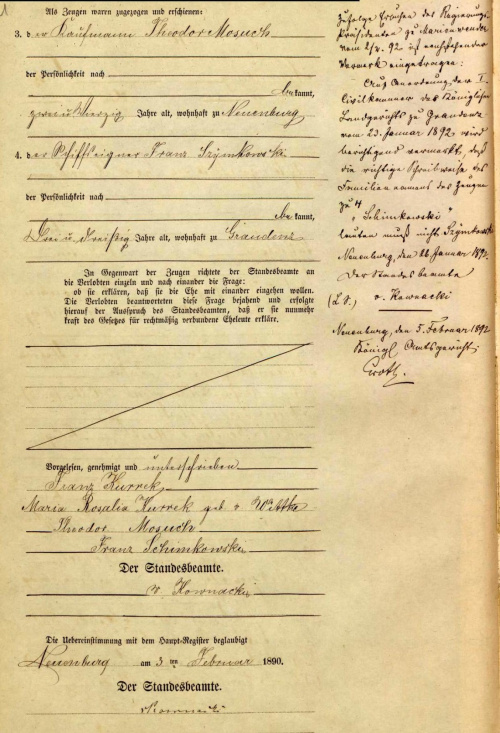 1
Als Zeugen waren zugezogen und erschienen:
3. der Kaufmann Theodor Mosuch
der Persönlichkeit nach
bekannt,
zwei u. vierzig Jahre alt, wohnhaft zu Neuenburg
4. der Schiffseigner Franz Szymkowski
der Persönlichkeit nach
bekannt,
drei u. dreißig Jahre alt, wohnhaft zu Graudenz
In Gegenwart der Zeugen richtete der Standesbeamte an
die Verlobten einzeln und nach einander die Frage:
ob sie erklären, daß sie die Ehe mit einander eingehen wollen.
Die Verlobten beantworteten diese Frage bejahend und erfolgte
hierauf der Ausspruch des Standesbeamten, daß er sie nunmehr
kraft des Gesetzes für rechtmäßig verbundene Eheleute erkläre.
Vorgelesen, genehmigt und unterschrieben
Franz Kurrek
Maria Rosalia Kurrek geb. v
Theodor Mosuch
Franz Schimkowski
Der Standesbeamte.
v Kownacki
Die Uebereinstimmung mit dem Haupt-Register beglaubigt
Neuenburg am 3 ten Februar 1890.
Der Standesbeamte.
v Kownacki
Zufolge des Regierungs-
Präsidenten zu Marienwerder
vom 92 ist nachstehender
Vermerk eingetragen:
Auf Anordnung der I.
Civilkammer des Königlichen
Landgerichts zu Graudenz
vom 23. Januar 1892 wird
berichtigend vermerkt, daß
die richtige Schreibweise des
Familiennamens des Zeugen
zu 4
"Schimkowski"
lauten muß nicht Szymkowski
Neuenburg, den 26. Januar 1892.
Der Standesbeamte
(L.S.) v. Kownacki
Neuenburg, den 5. Februar 1892
Königl Amtsgericht.